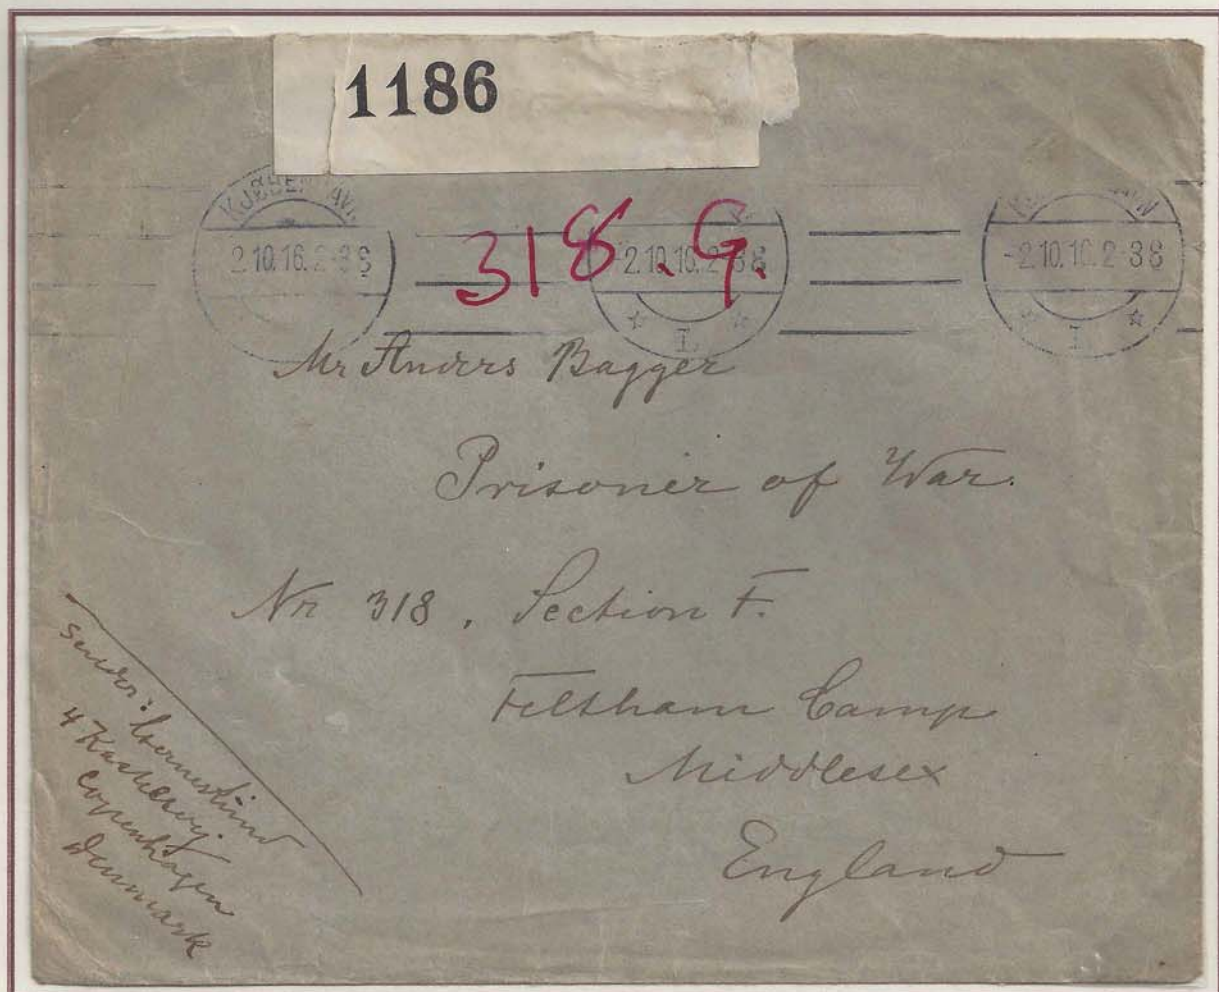 1186
KJØBENHAVN
2.10.16. 2-3 8
318. G.
-2.10.16. 2-3 8
L
KJØBENHAVN
-2.10.16. 2-3 8
L
Mr Anders Bagger
Prisoner of War.
Nr 318, Section F.
Feltham Camp
Middlesex
England
Sender:
4
Copenhagen
Denmark